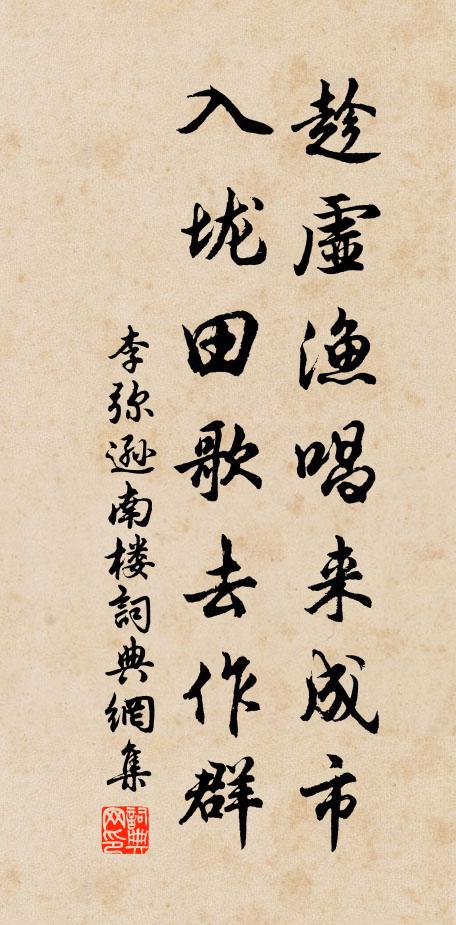 趁虛漁唱来成市
入垅田歌去作群
李弥遜南楼詞典網集
詞典网印